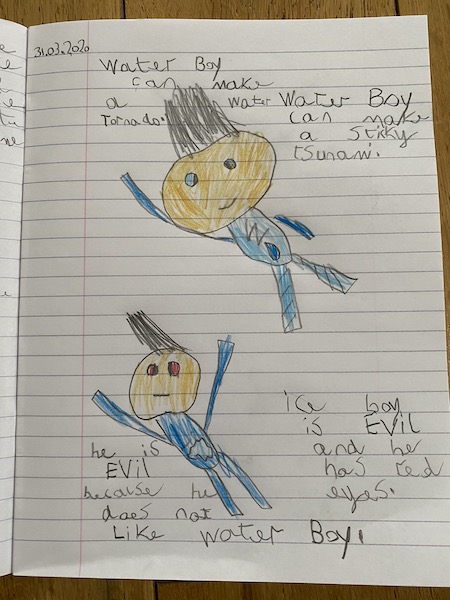 31.03.2020
Water Boy
can make
a water
Tornado.
Water Boy
can make
a sticky
tsunami.
W
ice boy
is EVIL
and he
has red
eyes.
he is
EVIL
because he
does not
Like Water Boy.